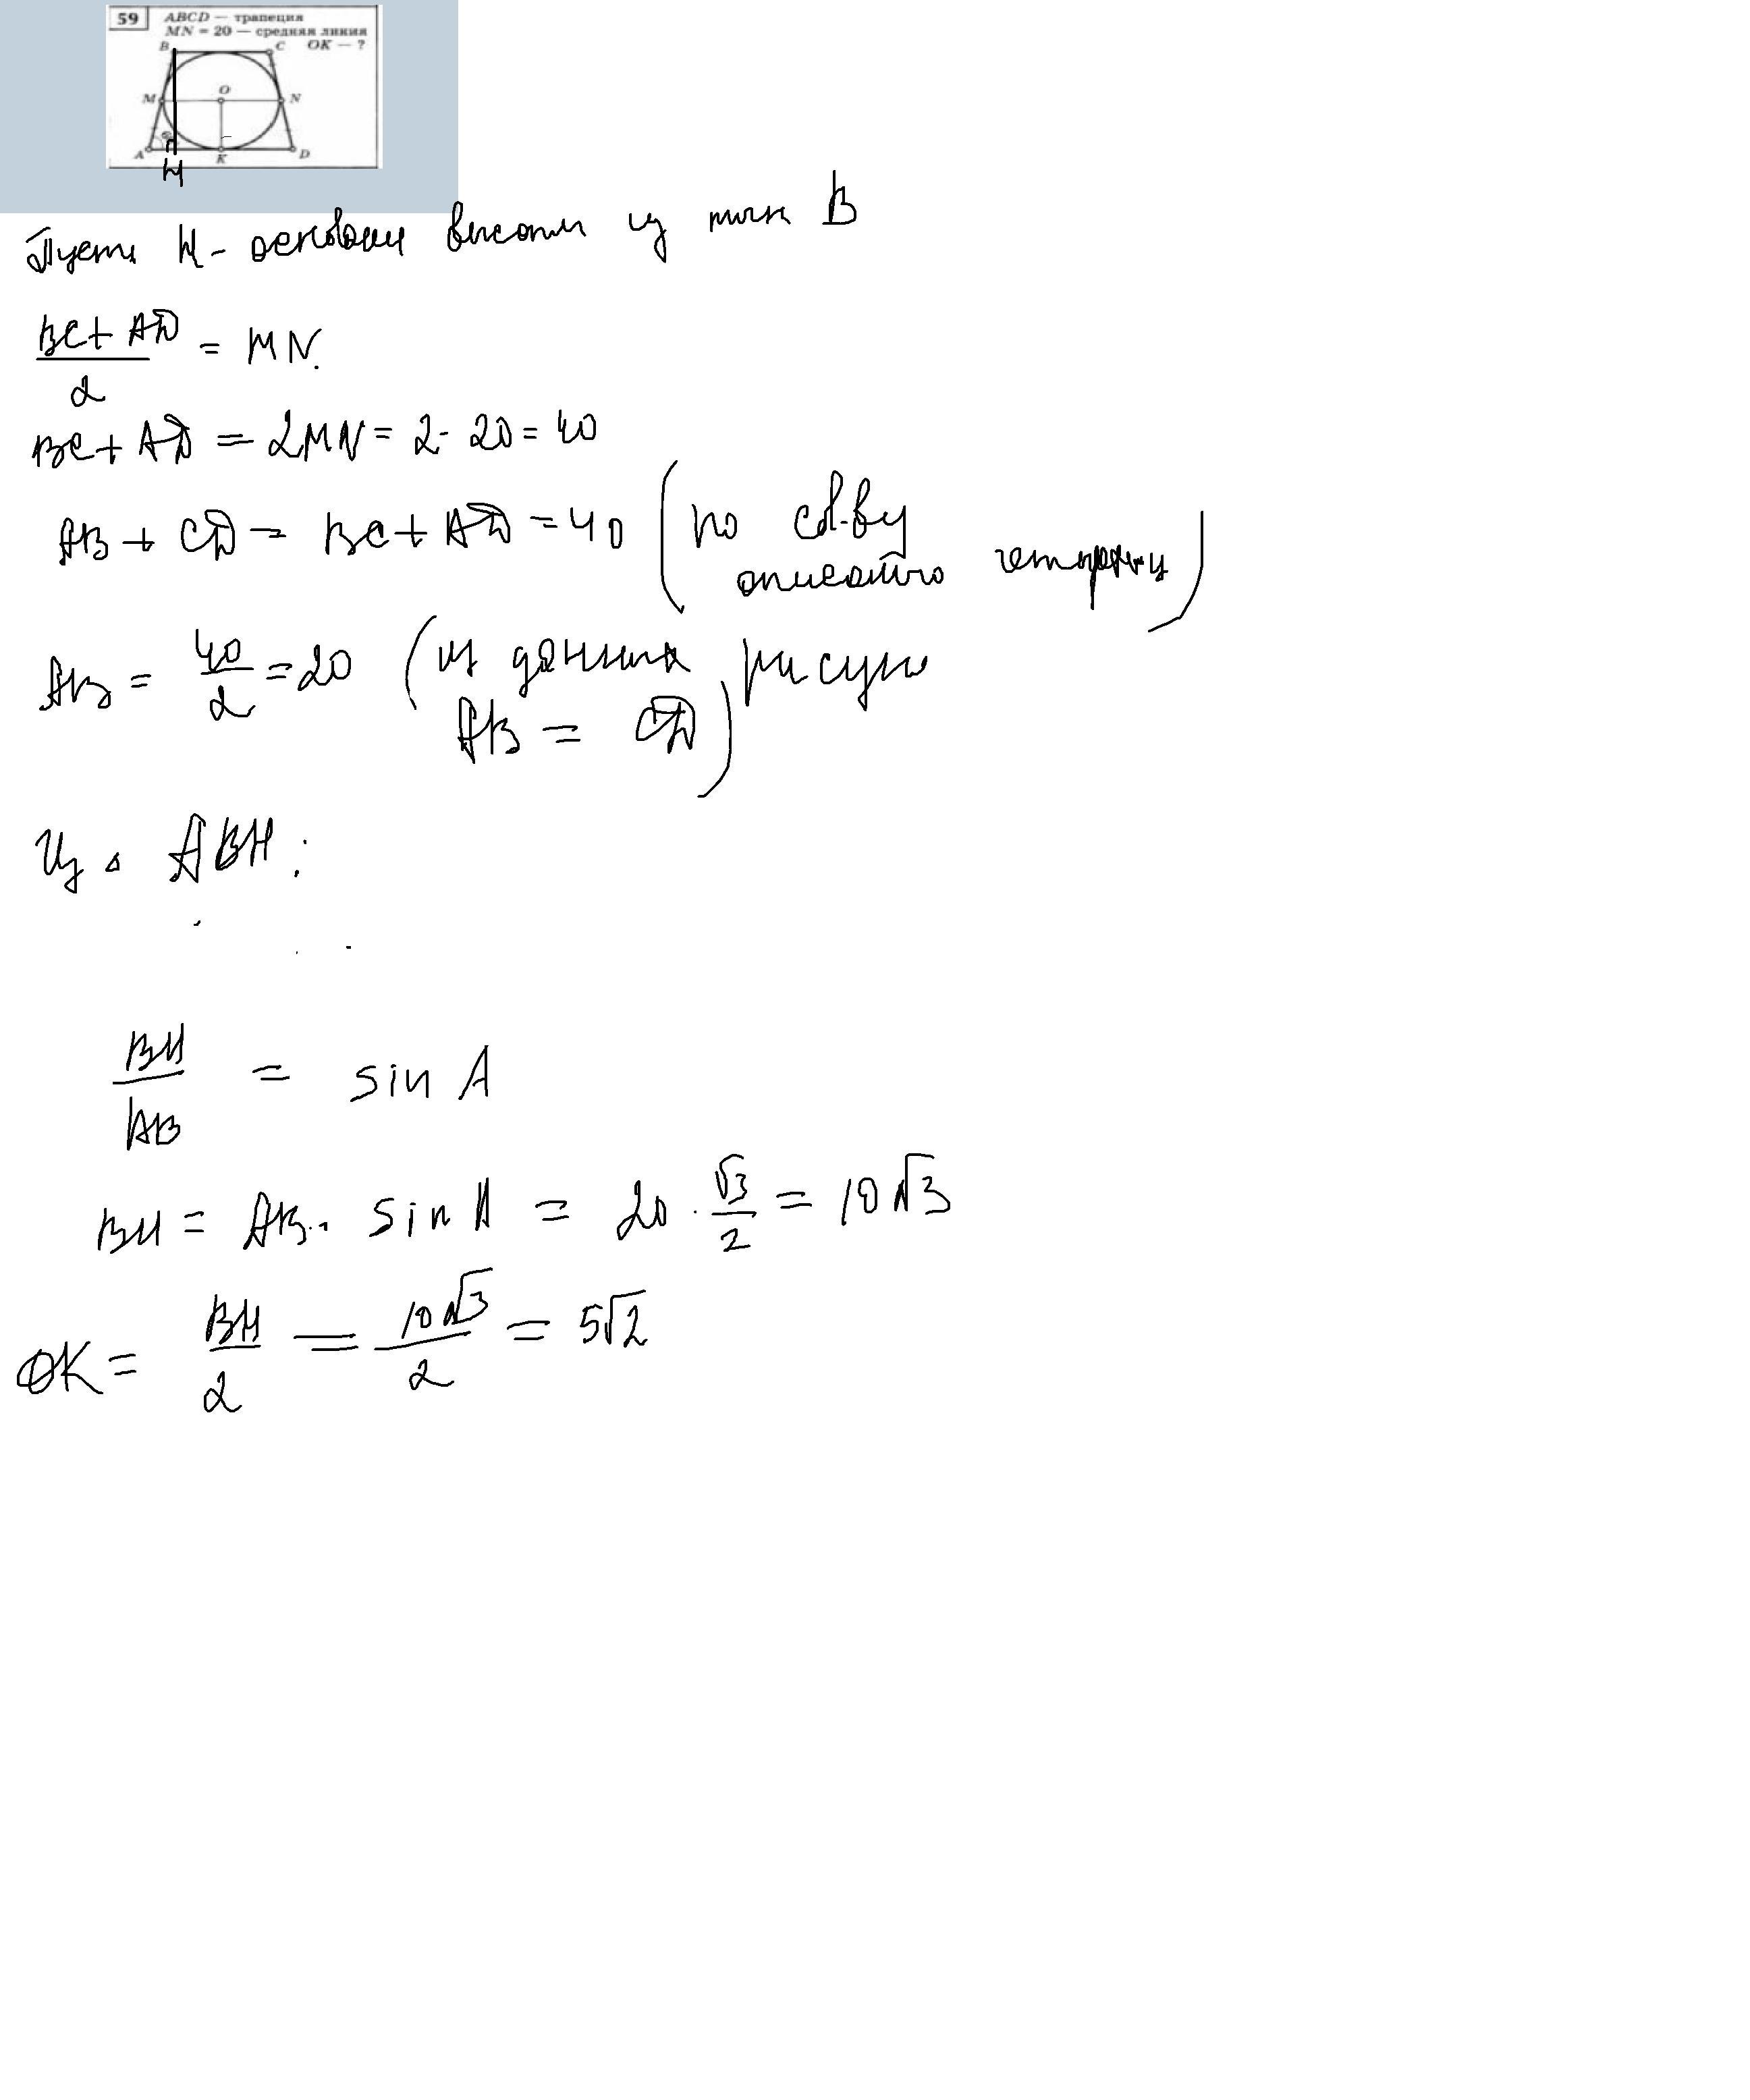 59 ABCD — трапеция
MN = 20 — средняя линия
OK — ?
B C
M O N
A K D
H
Пусть H - основание высоты из точки B
(BC + AD)/2 = MN.
BC + AD = 2MN = 2 · 20 = 40
AB + CD = BC + AD = 40 (по св-ву
описанного четырехуг)
AB = 40/2 = 20 (из данных рисунка
AB = CD)
Из △ ABH:
BH/AB = sin A
BH = AB · sin A = 20 · √3/2 = 10√3
OK = BH/2 = 10√3/2 = 5√2